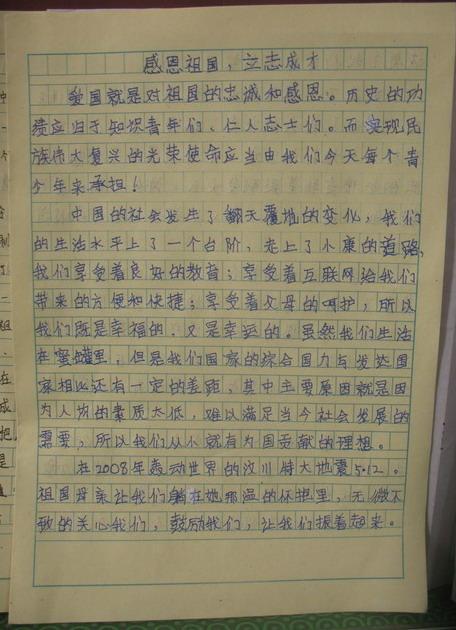 感恩祖国，立志成才
爱国就是对祖国的忠诚和感恩。历史的功
绩应归于知识青年们、仁人志士们。而实现民
族伟大复兴的光荣使命应当由我们今天每个青
少年来承担！
中国的社会发生了翻天覆地的变化，我们
的生活水平上了一个台阶，走上了小康的道路，
我们享受着良好的教育；享受着互联网给我们
带来的方便和快捷；享受着父母的呵护，所以
我们既是幸福的，又是幸运的。虽然我们生活
在蜜罐里，但是我们国家的综合国力与发达国
家相比还有一定的差距，其中主要原因就是因
为人均的素质太低，难以满足当今社会发展的
需要，所以我们从小就有为国贡献的理想。
在2008年轰动世界的汶川特大地震5.12。
祖国母亲让我们躺在她那温的怀抱里，无微不
致的关心我们，鼓励我们，让我们振着起来。